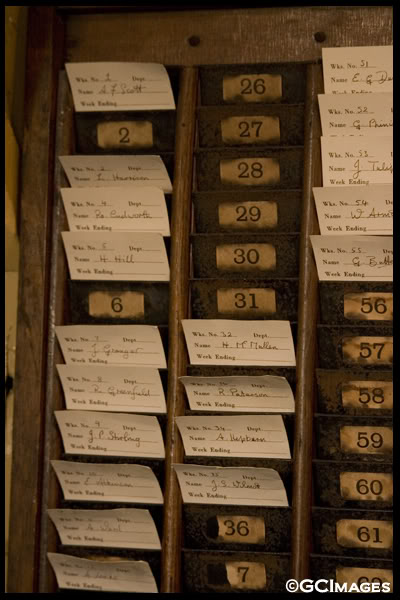 Wks. No. 1 Dept.
Name A F Scott
Week Ending
2
Wks. No. 3 Dept.
Name L. Harrison
Wks. No. 4 Dept.
Name
Week Ending
Wks. No. 5 Dept.
Name H. Hill
Week Ending
6
Wks. No. 7 Dept.
Name J. Granger
Week Ending
Wks. No. 8 Dept.
Name R. Greenfield
Week Ending
Wks. No. 9 Dept.
Name J. P. Sterling
Week Ending
Wks. No. 10 Dept.
Name
Week Ending
Wks. No. Dept.
Name
Week Ending
Name
26
27
28
29
30
31
Wks. No. 32 Dept.
Name H. McMullen
Week Ending
Wks. No. Dept.
Name R. Paterson
Week Ending
Wks. No. 34 Dept.
Name A. Hepburn
Week Ending
Wks. No. 35 Dept.
Name
Week Ending
36
7
Wks. No. 51
Name E G
Week Ending
Wks. No. 52
Name G.
Wks. No. 53
Name J.
Week Ending
Wks. No. 54
Name W
Week Ending
Wks. No. 55
Name G
Week Ending
56
57
58
59
60
61
©GCIMAGES